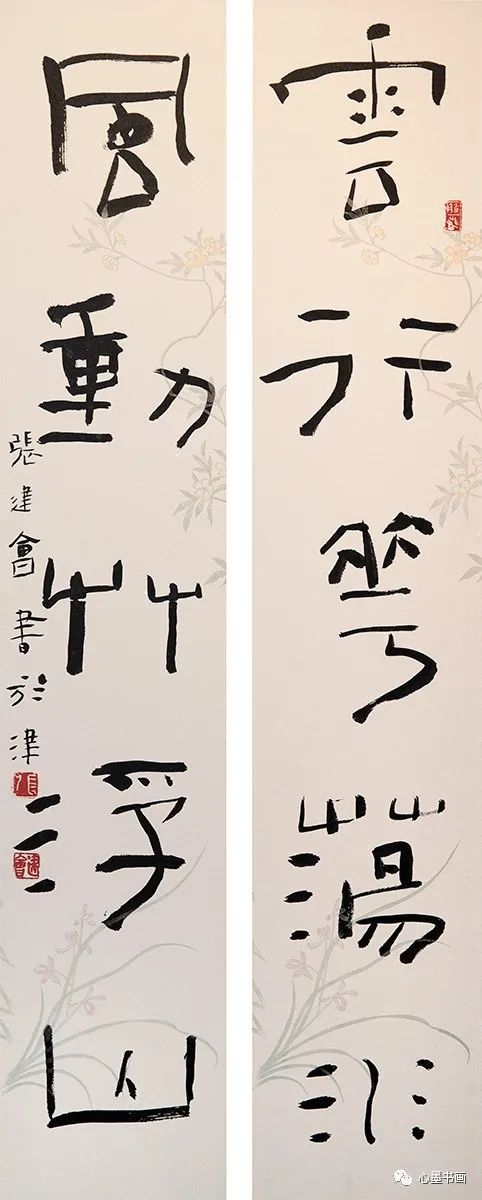 雲行華蕩水
風動艸浮山
張建會書於津
心墨书画